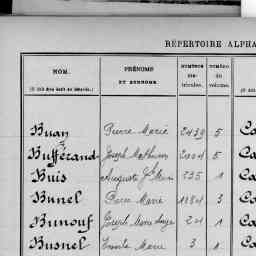 RÉPERTOIRE ALPHA
NOM. PRÉNOMS ET SURNOMS. NUMÉROS matricules. NUMÉRO du volume.
Buan Pierre Marie 2439 5 Co
Bufférand Joseph Mathurin 2004 5 Co
Buis Auguste Jn Marie 235 1 Co
Bunel Pierre Marie 1184 3 Co
Bunouf Joseph Marie Ange 201 1 Co
Busnel Marie 3 1 Co